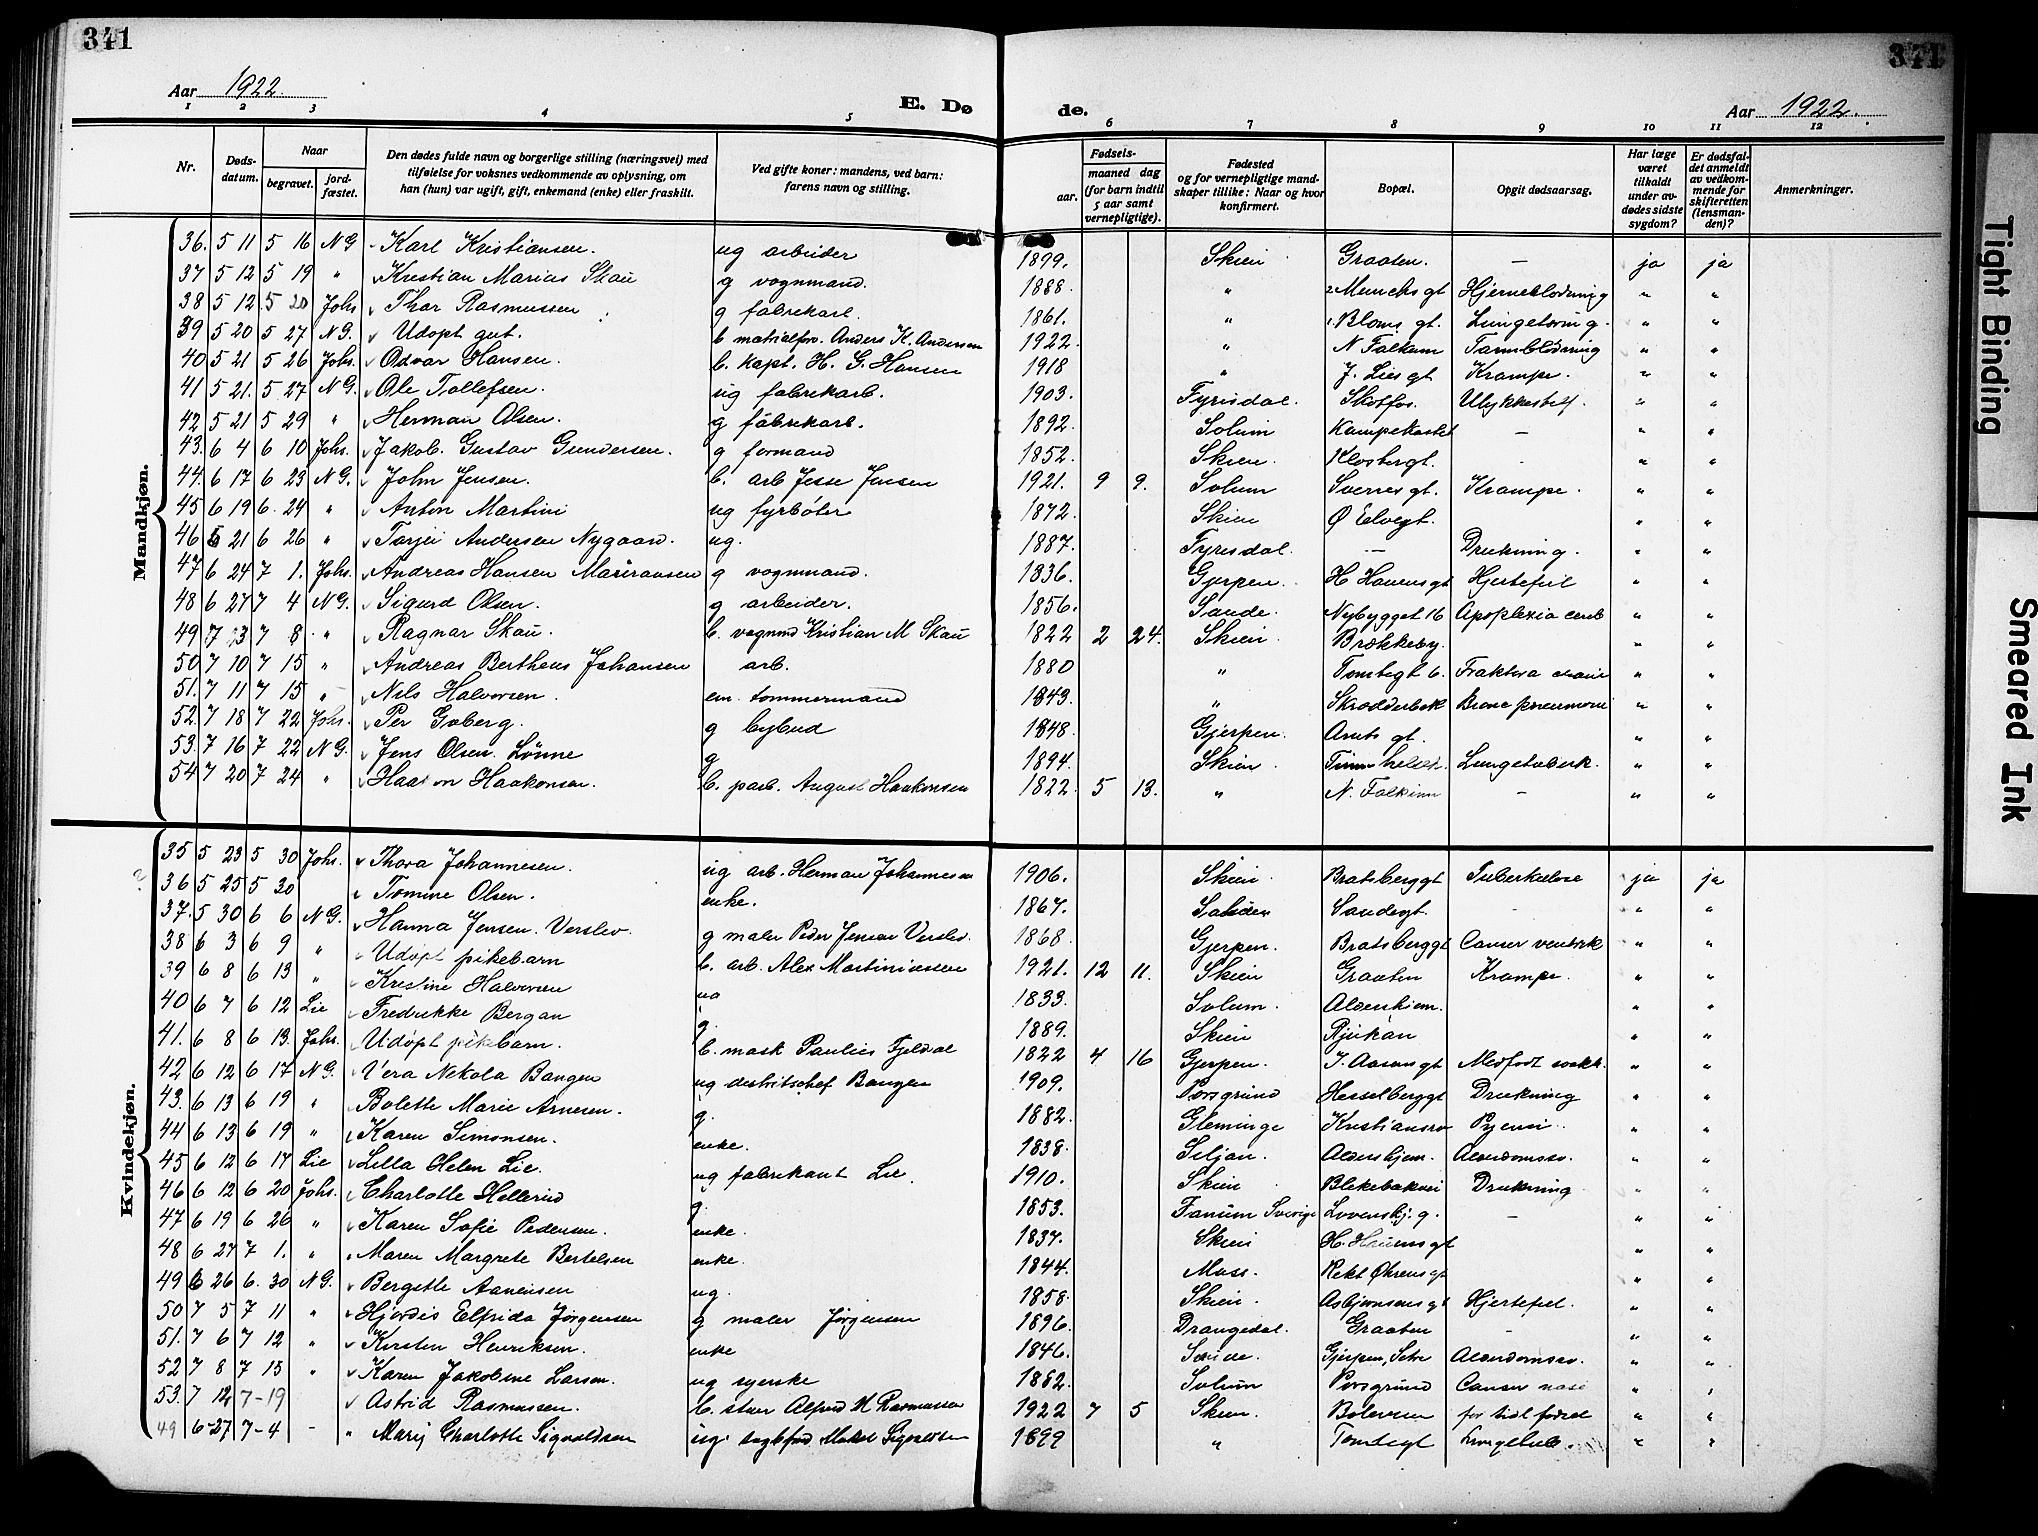 341
341
Aar 1922.
E. Dø
de.
Aar 1922.
1 2 3 4 5 6 7 8 9 10 11 12
Nr. Døds-datum. Naar begravet. jord-fæstet. Den dødes fulde navn og borgerlige stilling (næringsvei) med tilføielse for voksnes vedkommende av oplysning, om han (hun) var ugift, gift, enkemand (enke) eller fraskilt. Ved gifte koner: mandens, ved barn: farens navn og stilling. Fødsels- aar. maaned dag (for barn indtil 5 aar samt vernepligtige). Fødested og for vernepligtige mandskaper tillike: Naar og hvor konfirmert. Bopæl. Opgit dødsaarsag. Har læge været tilkaldt under avdødes sidste sygdom? Er dødsfaldet anmeldt av vedkommende for skifteretten (lensmanden)? Anmerkninger.
Mandkjøn.
36. 5 11 5 16 N G Karl Kristiansen. ug arbeider 1899. Skien Graaten. — ja ja
37 5 12 5 19 " Kristian Marius Skau g vognmand. 1888. " Munchs gt Hjerneblødning " "
38 5 12 5 20 Johs Thor Rasmussen g fabrikarb. 1861. " Bloms gt. Lungetæring. " "
39 5 20 5 27 N G. Udøpt gut. b matrialforv. Anders K. Andersen 1922. " N Falkum Tarmblødning " "
40 5 21 5 26 Johs. Odvar Hansen. b. kapt. H. G. Hansen 1918 " J. Lies gt Krampe. " "
41 5 21. 5 27 N G. Ole Tollefsen. ug fabrikarb. 1903. Fyrisdal. Skotfos. Ulykkestilf " "
42 5 21 5 29 " Herman Olsen. g fabrikarb. 1892. Solum Kampekastet — " "
43. 6 4 6 10 Johs. Jakob Gustav Gundersen. g formand 1852. Skien. Klosbergt. - " "
44. 6 17 6 23 N G. John Jensen. b. arb Jesse Jensen 1921. 9 9. Solum Sverresgt. Krampe. " "
45 6 19 6. 24 " Anton Martini ug fyrbøter 1872. Skien Ø Elvegt. " "
46 6 21 6 26 " Tarjei Andersen Nygaard. ug. 1887. Fyresdal. — Drukning. " "
47 6 24 7 1. Johs. Andreas Hansen g vognmand. 1836. Gjerpen. H Houens gt Hjertefeil " "
48 6 27 7 4 N G. Sigurd Olsen. g arbeider. 1856. Sande. Nybygget 16 Apoplexia cereb " "
49 7 3 7 8 " Ragnar Skau. b. vognmd Kristian M Skau 1822 2 24. Skien. Brækkeby. " "
50 7 10 7 15 " Andreas Berthens Johansen arb. 1880 " Tomtegt 6. Fraktura " "
51. 7 11 7 15 " Nils Halvorsen. em. tømmermand 1843. " Skrædderbek " "
52. 7 18 7 22 Johs. Per Goberg. g bybud 1848. Gjerpen. Amts gt. " "
53. 7 16 7 22 N G. Jens Olsen Lønne g 1894. Skien. Lungetuberk. " "
54 7 20 7 24 " Haakon Haakonsen. b. parb. August Haakonsen 1822. 5 13. " N. Falkum - " "
Kvindekjøn.
35 5 23 5 30 Johs. Thora Johannesen. ug arb. Herman Johannesen 1906. Skien. Bratsberggt Tuberkulose ja ja
36 5 25 5 30 Tomine Olsen. enke. 1867. Sandegt. - " "
37. 5 30 6 6 N G. Hanna Jensen Verslev. g maler Peder Jensen Verslev. 1868. Gjerpen. Bratsberggt Canser ventrik " "
38 6 3 6 9 " Udøpt pikebarn b. arb. Alex Martiniussen 1921. 12 11. Skien Graaten Krampe. " "
39 6 8 6 13 " Kristine Halvorsen ug 1833. Solum. Aldershjem. " "
40 6 7 6 12 Lie Fredrikke Bergan g. 1889. Skien Rjukan " "
41. 6 8 6 13. Johs. Udøpt pikbarn. b. mask Paulus Fjeldal 1822 4 16 Gjerpen. I. Aasens gt Medfødt svakh. " "
42 6 12 6 17 N G. Vera Nekola Bangen ug Bangen 1909. Porsgrund Hesselberggt Drukning " "
43. 6 13 6 19 " Bolette Marie Arnesen. g. 1882. Gleminge Kristianssv " "
44 6 13 6 19 " Karen Simonsen. enke. 1838. Siljan. Aldershjem. Alderdomssv. " "
45 6 12 6 17 Lie Lilla Helen Lie. ug fabrikant Lie. 1910. Skien Blekebakvei Drukning " "
46 6 12 6 20 Johs. Charlotte g. 1853. Fanum Sverige Løvenskj. g. — " "
47 6 19 6 26 " Karen Sofie Pedersen. enke. 1837. Skien H. Houens gt " "
48 6 27 7 1. " Maren Margrete Bertelsen enke. 1844. Moss. Rekt Ørens gt " "
49 6 26 6. 30 N G. Bergitte Aanensen ug. 1858. Skien. Asbjørnsens gt Hjertefeil. " "
50 7 5 7 11 " Hjørdis Elfrida Jørgensen g maler Jørgensen 1896. Drangedal. Graaten - " "
51. 7 6 7 12 " Kirsten Henriksen. enke 1846. Sande. Gjerpen, Setre Alderdomssv. " "
52 7 8 7 15 " Karen Jakobine Larsen. ug syerske 1862. Solum Porsgrund Canser " "
53. 7 14 7-19 Astrid Rasmussen. b. stuer Alfred M Rasmussen 1922 7 5 Skien. Bølevsen for tidl fødsel " "
49 6-27 7-4 - Marij Charlotte Sigvaldsen ug 1899 " Tomtegt " "
Tight Binding
Smeared Ink